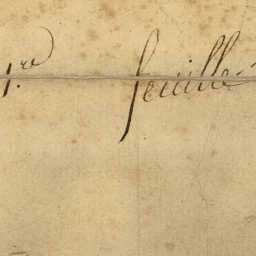 1.re feuille